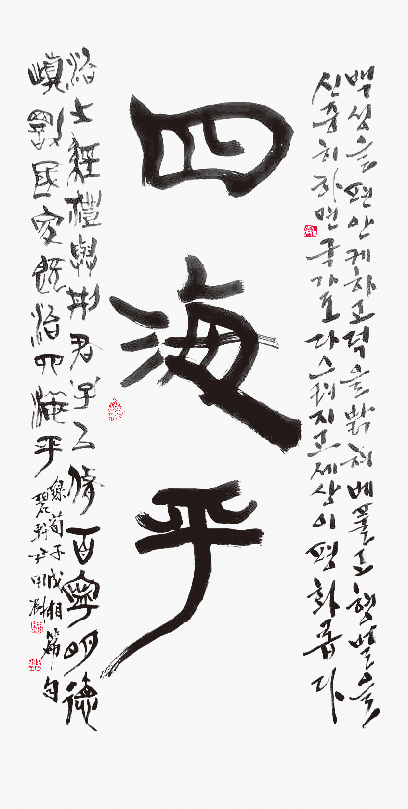 백성을편안케하고덕을밝혀베풀고형벌을
신중히하면국가도다스려지고세상이평화롭다
四海平
治之經禮與刑君子以修百寧明德
愼罰國家旣治四海平
錄荀子成相篇句